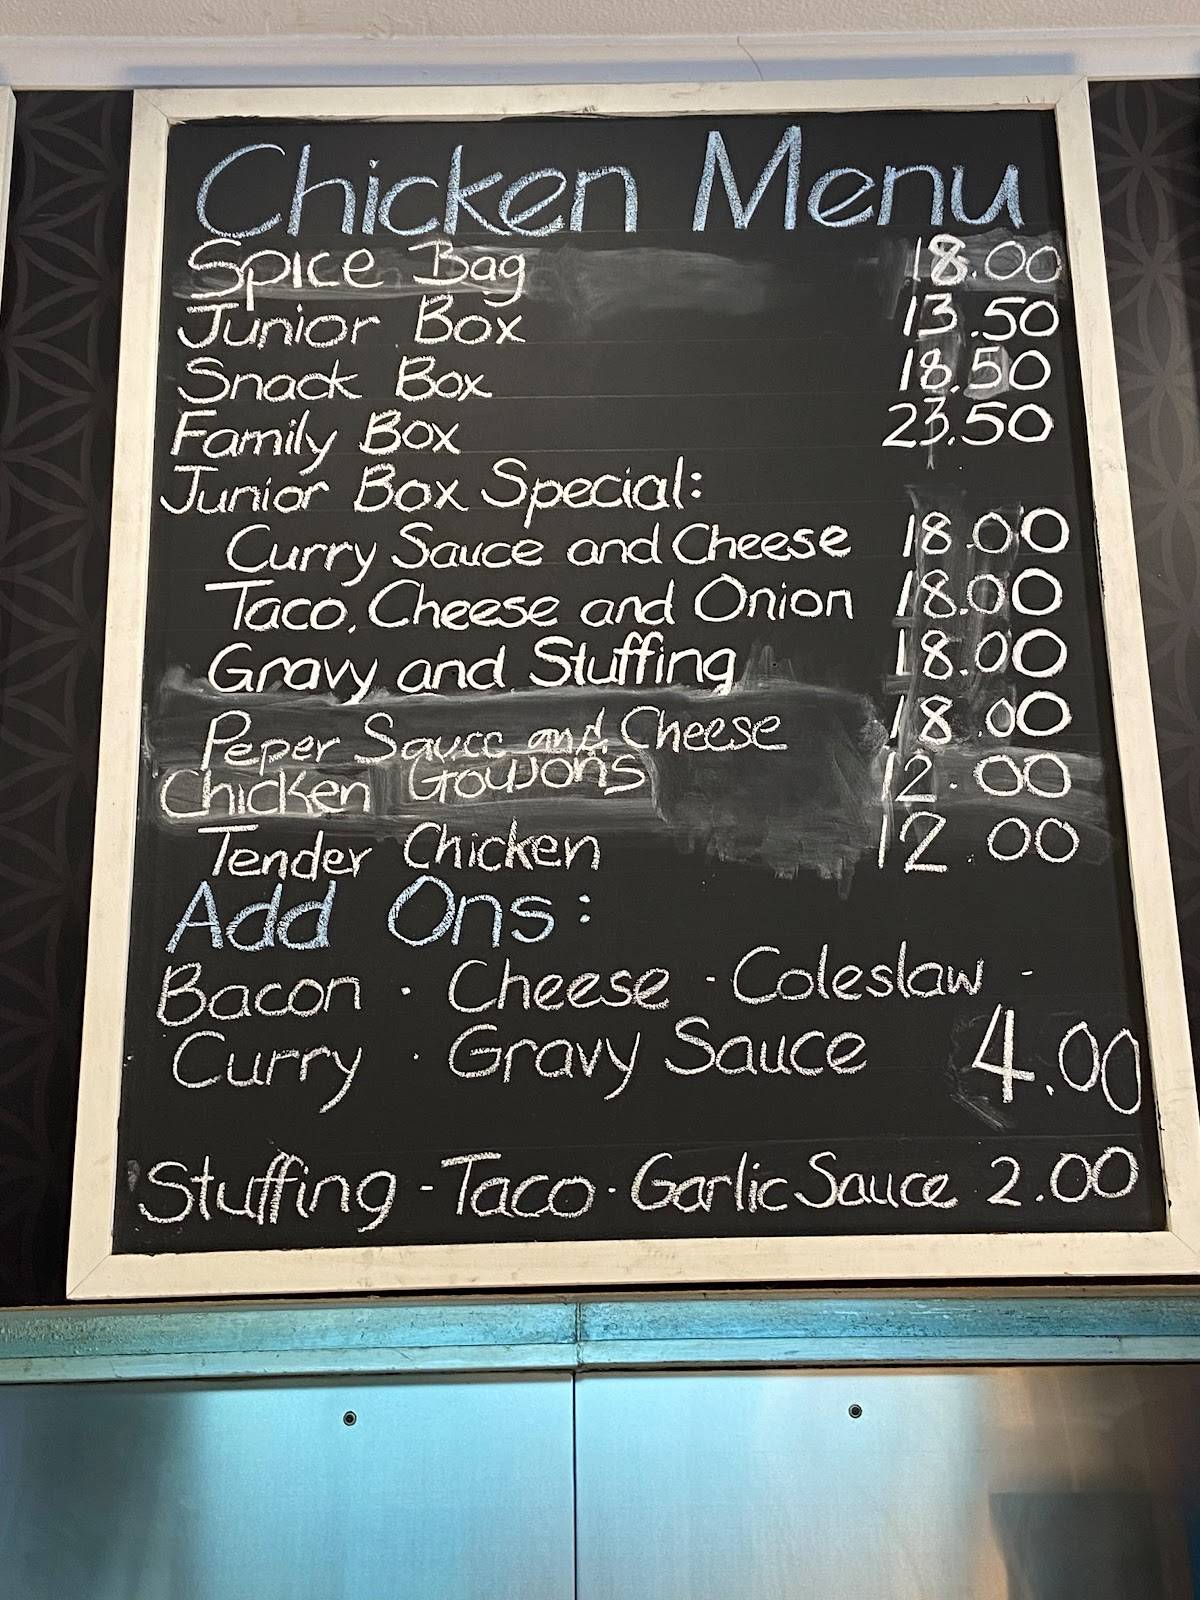 Chicken Menu
Spice Bag 18.00
Junior Box 13.50
Snack Box 18.50
Family Box 23.50
Junior Box Special:
Curry Sauce and Cheese 18.00
Taco, Cheese and Onion 18.00
Gravy and Stuffing 18.00
Peper Sauce and Cheese 18.00
Chicken Goujons 12.00
Tender Chicken 12.00
Add Ons:
Bacon · Cheese · Coleslaw -
Curry · Gravy Sauce 4.00
Stuffing - Taco · Garlic Sauce 2.00